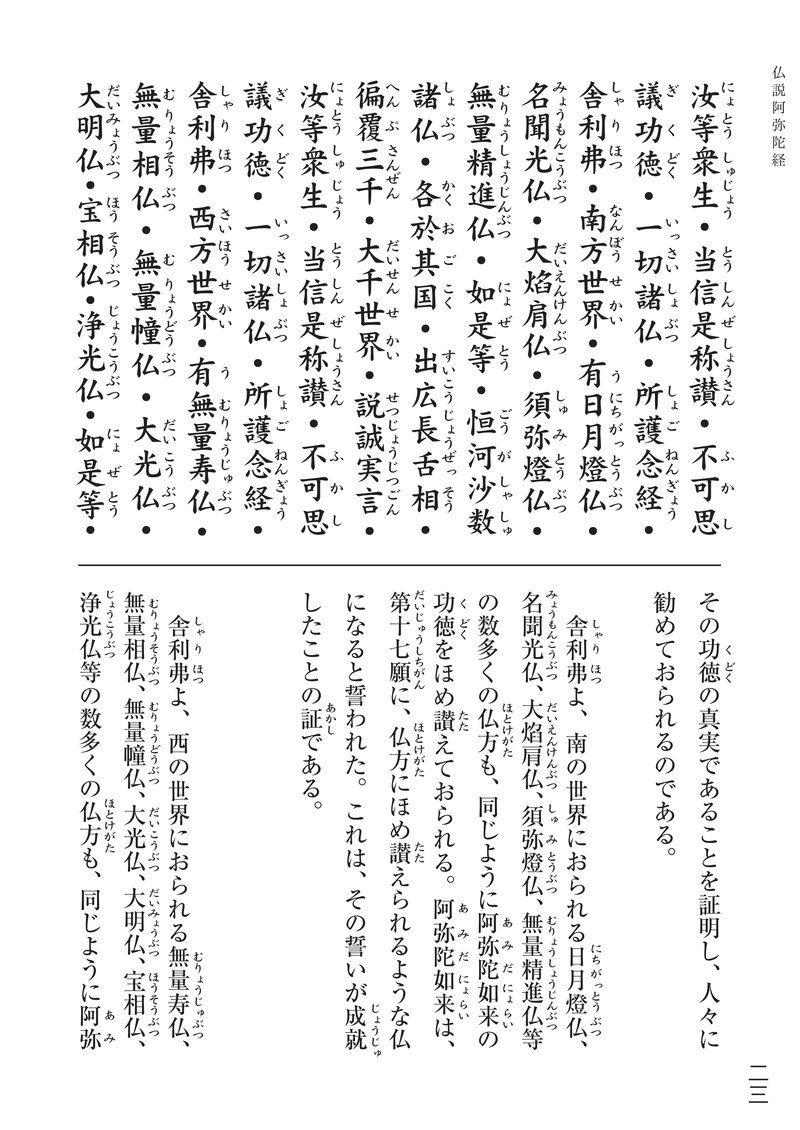 仏説阿弥陀経
汝等衆生・当信是称讃・不可思
議功徳・一切諸仏・所護念経・
舎利弗・南方世界・有日月燈仏・
名聞光仏・大焔肩仏・須弥燈仏・
無量精進仏・如是等・恒河沙数
諸仏・各於其国・出広長舌相・
徧覆三千・大千世界・説誠実言・
汝等衆生・当信是称讃・不可思
議功徳・一切諸仏・所護念経・
舎利弗・西方世界・有無量寿仏・
無量相仏・無量幢仏・大光仏・
大明仏・宝相仏・浄光仏・如是等・
その功徳の真実であることを証明し、人々に
勧めておられるのである。
舎利弗よ、南の世界におられる日月燈仏、
名聞光仏、大焔肩仏、須弥燈仏、無量精進仏等
の数多くの仏方も、同じように阿弥陀如来の
功徳をほめ讃えておられる。阿弥陀如来は、
第十七願に、仏方にほめ讃えられるような仏
になると誓われた。これは、その誓いが成就
したことの証である。
舎利弗よ、西の世界におられる無量寿仏、
無量相仏、無量幢仏、大光仏、大明仏、宝相仏、
浄光仏等の数多くの仏方も、同じように阿弥
二三